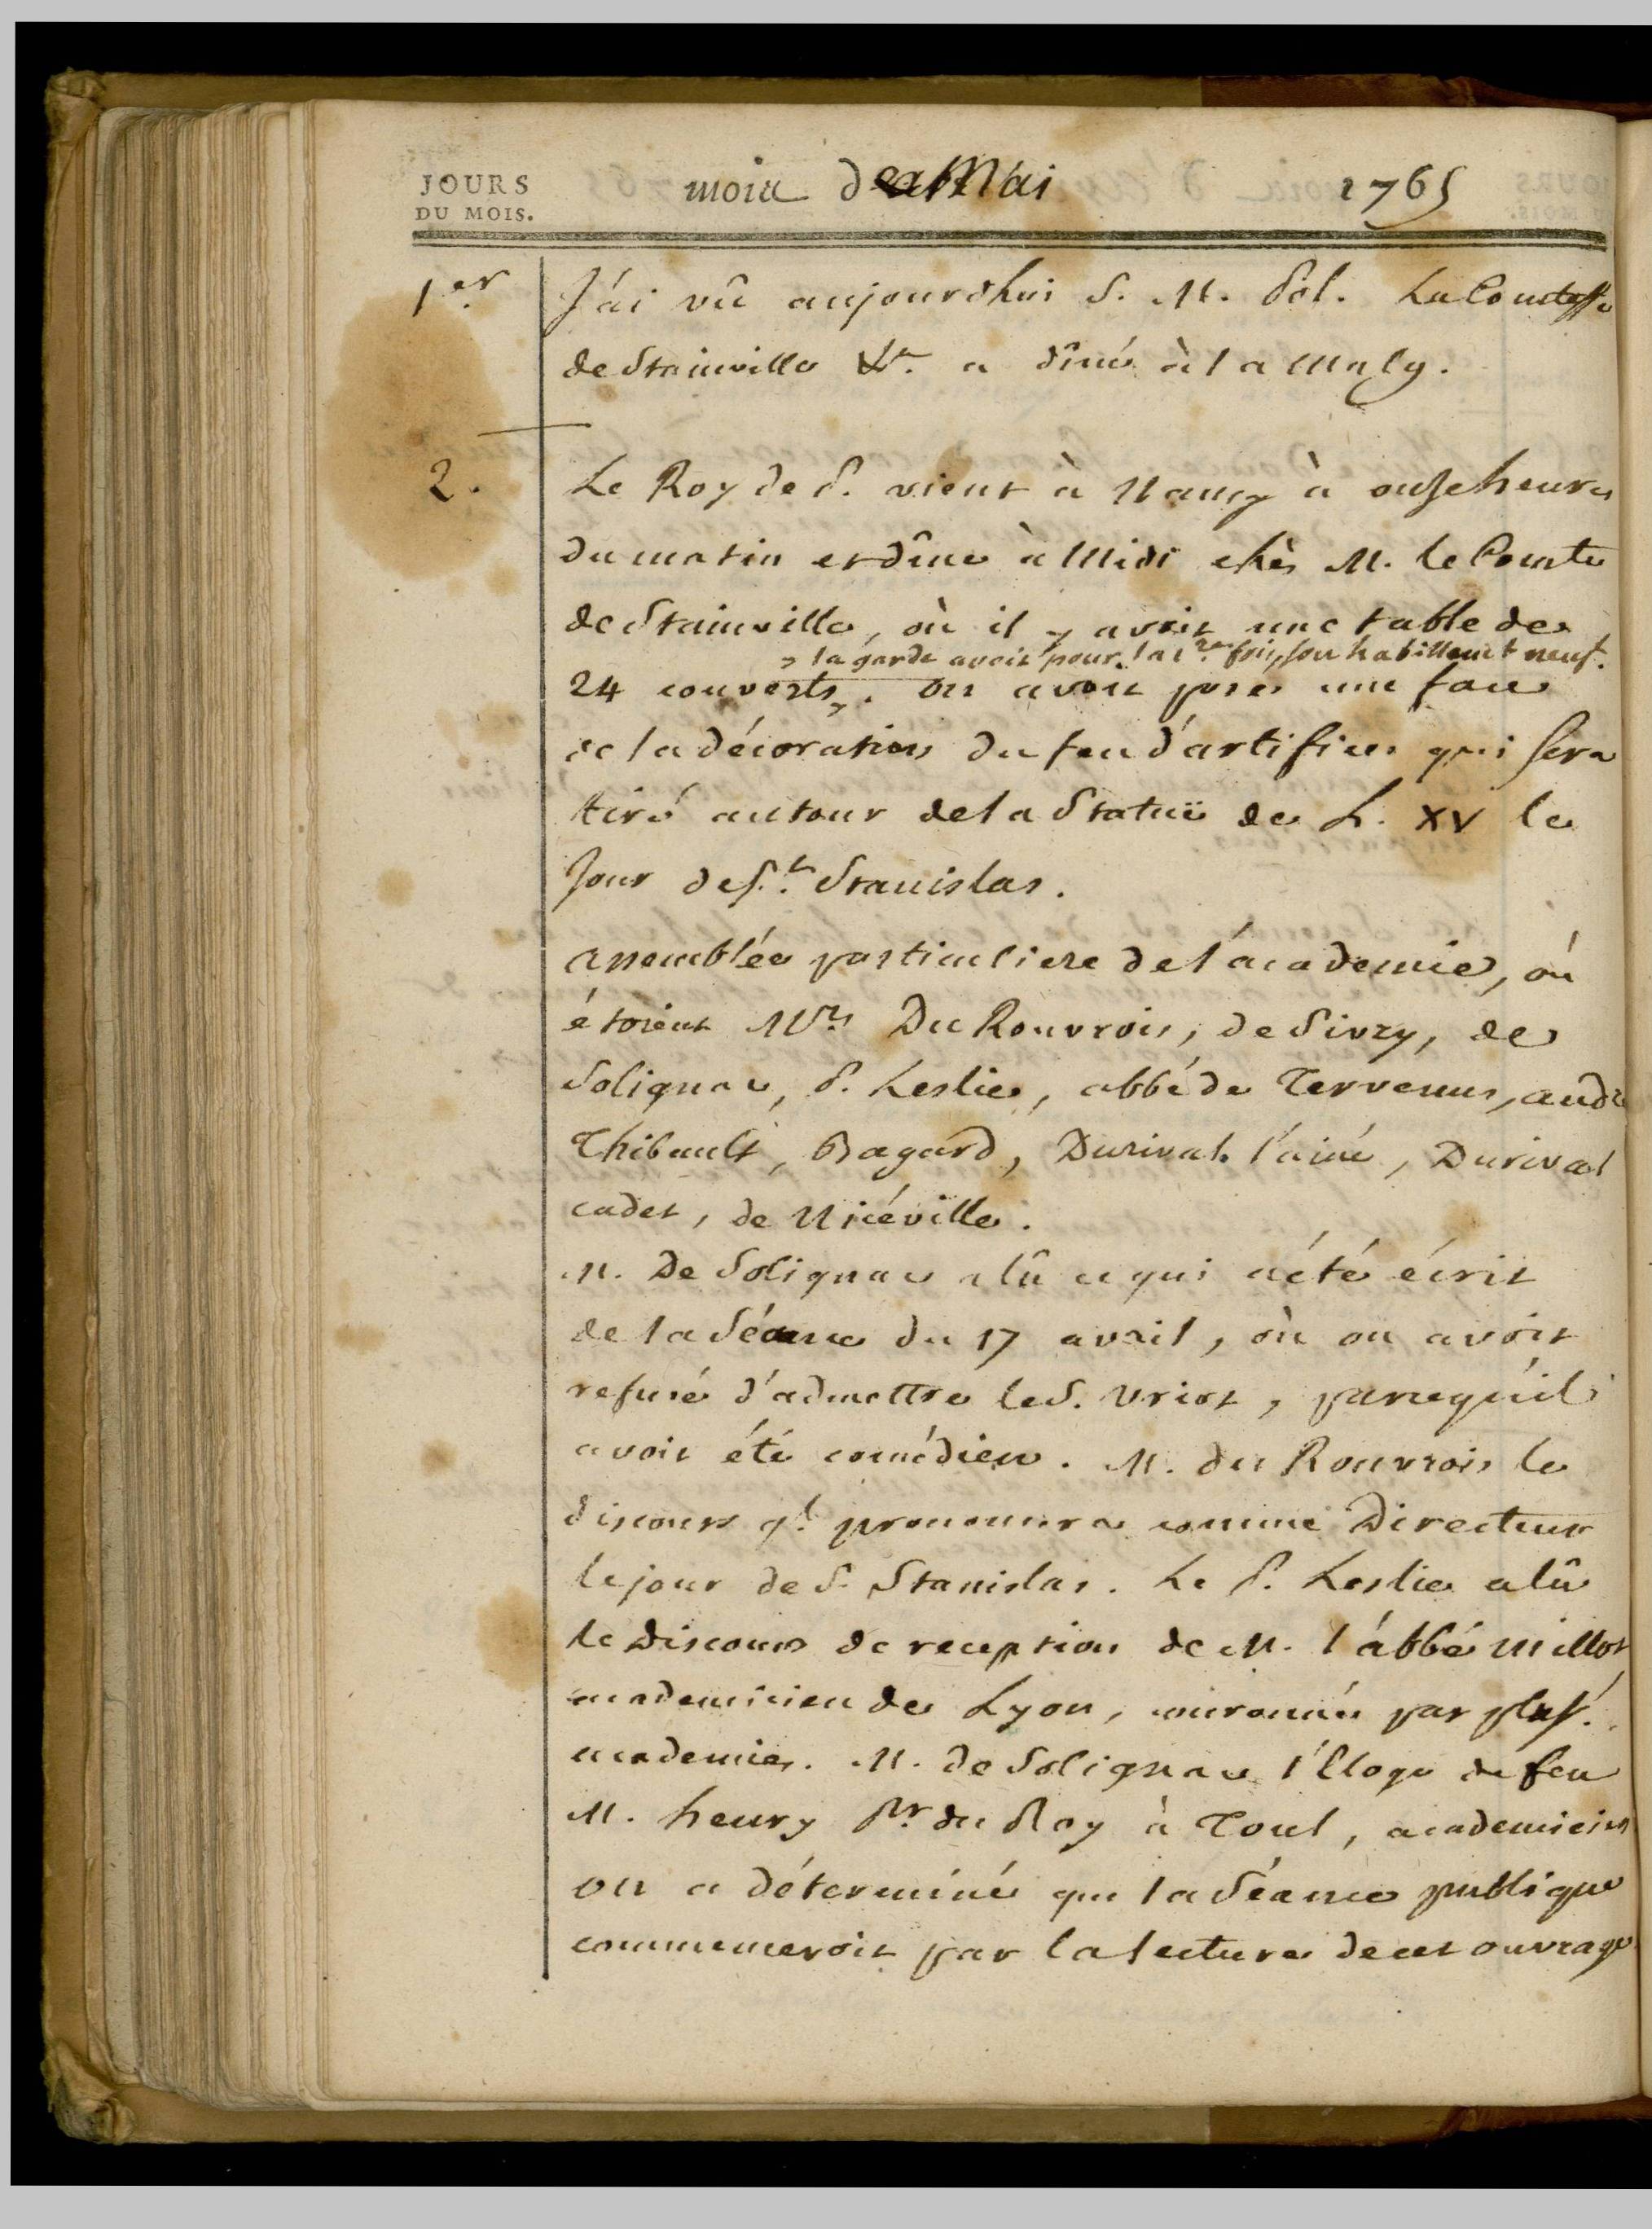 JOURS
DU MOIS.
mois de Mai 1765
1er J'ai vû aujourdhui S. M. Pol. La Comtesse
de Stainville &c. a dîné à la Malg.
2. Le Roy de P. vient à Nancy à onze heures
du matin et dîne à Midi chès M. le Comte
de Stainville, où il y avoit une table de
, la garde avoit pour la 1re fois, son habillemt neuf.
24 couverts. on avoit posé une face
de la décoration du feu d'artifice qui sera
tiré autour de la Statuë de L. XV le
Jour de St. Stanislas.
assemblée particuliere de l'académie, où
étoient Mrs Du Rouvrois, de Sivry, de
Solignac, P. Leslie, abbé de Tervenus, andré
Thibault, Bagard, Durival l'ainé, Durival
cadet, de Nicéville.
M. De Solignac a lû ce qui a été écrit
de la Séance du 17 avril, où on avoit
refusé d'admettre le S. Uriot, parcequ'il
avoit été comédien. M. du Rouvrois le
discours ql. prononcera comme Directeur
le jour de S. Stanislas. Le P. Leslie a lû
le Discours de reception de M. l'abbé Millot
academicien de Lyon, couronné par plus.
academies. M. de Solignac l'Eloge de feu
M. henry Pr. du Roy à Toul, academicien
on a déterminé que la Séance publique
commenceroit par la lecture de cet ouvrage